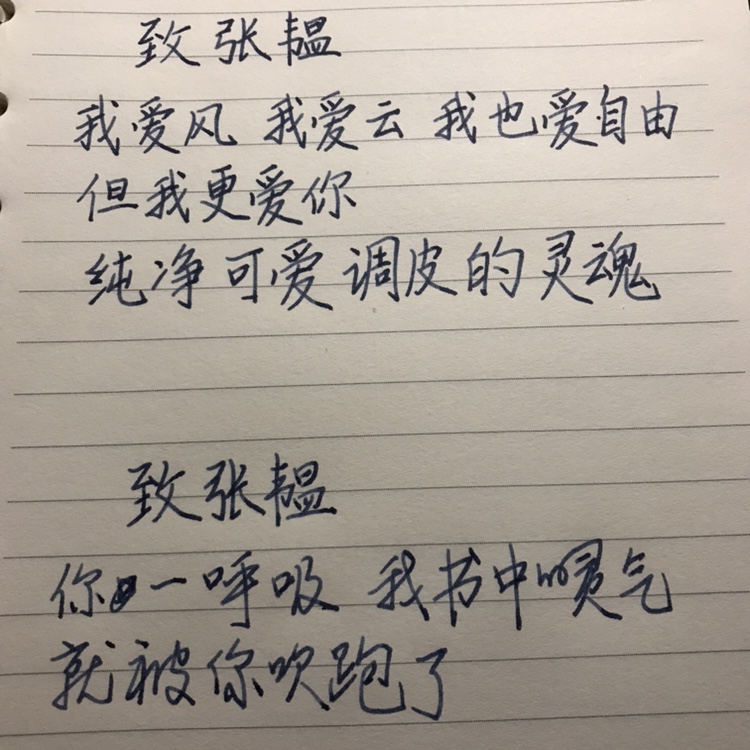 致张韫
我爱风 我爱云 我也爱自由
但我更爱你
纯净可爱调皮的灵魂
致张韫
你一呼吸 我书中的灵气
就被你吹跑了